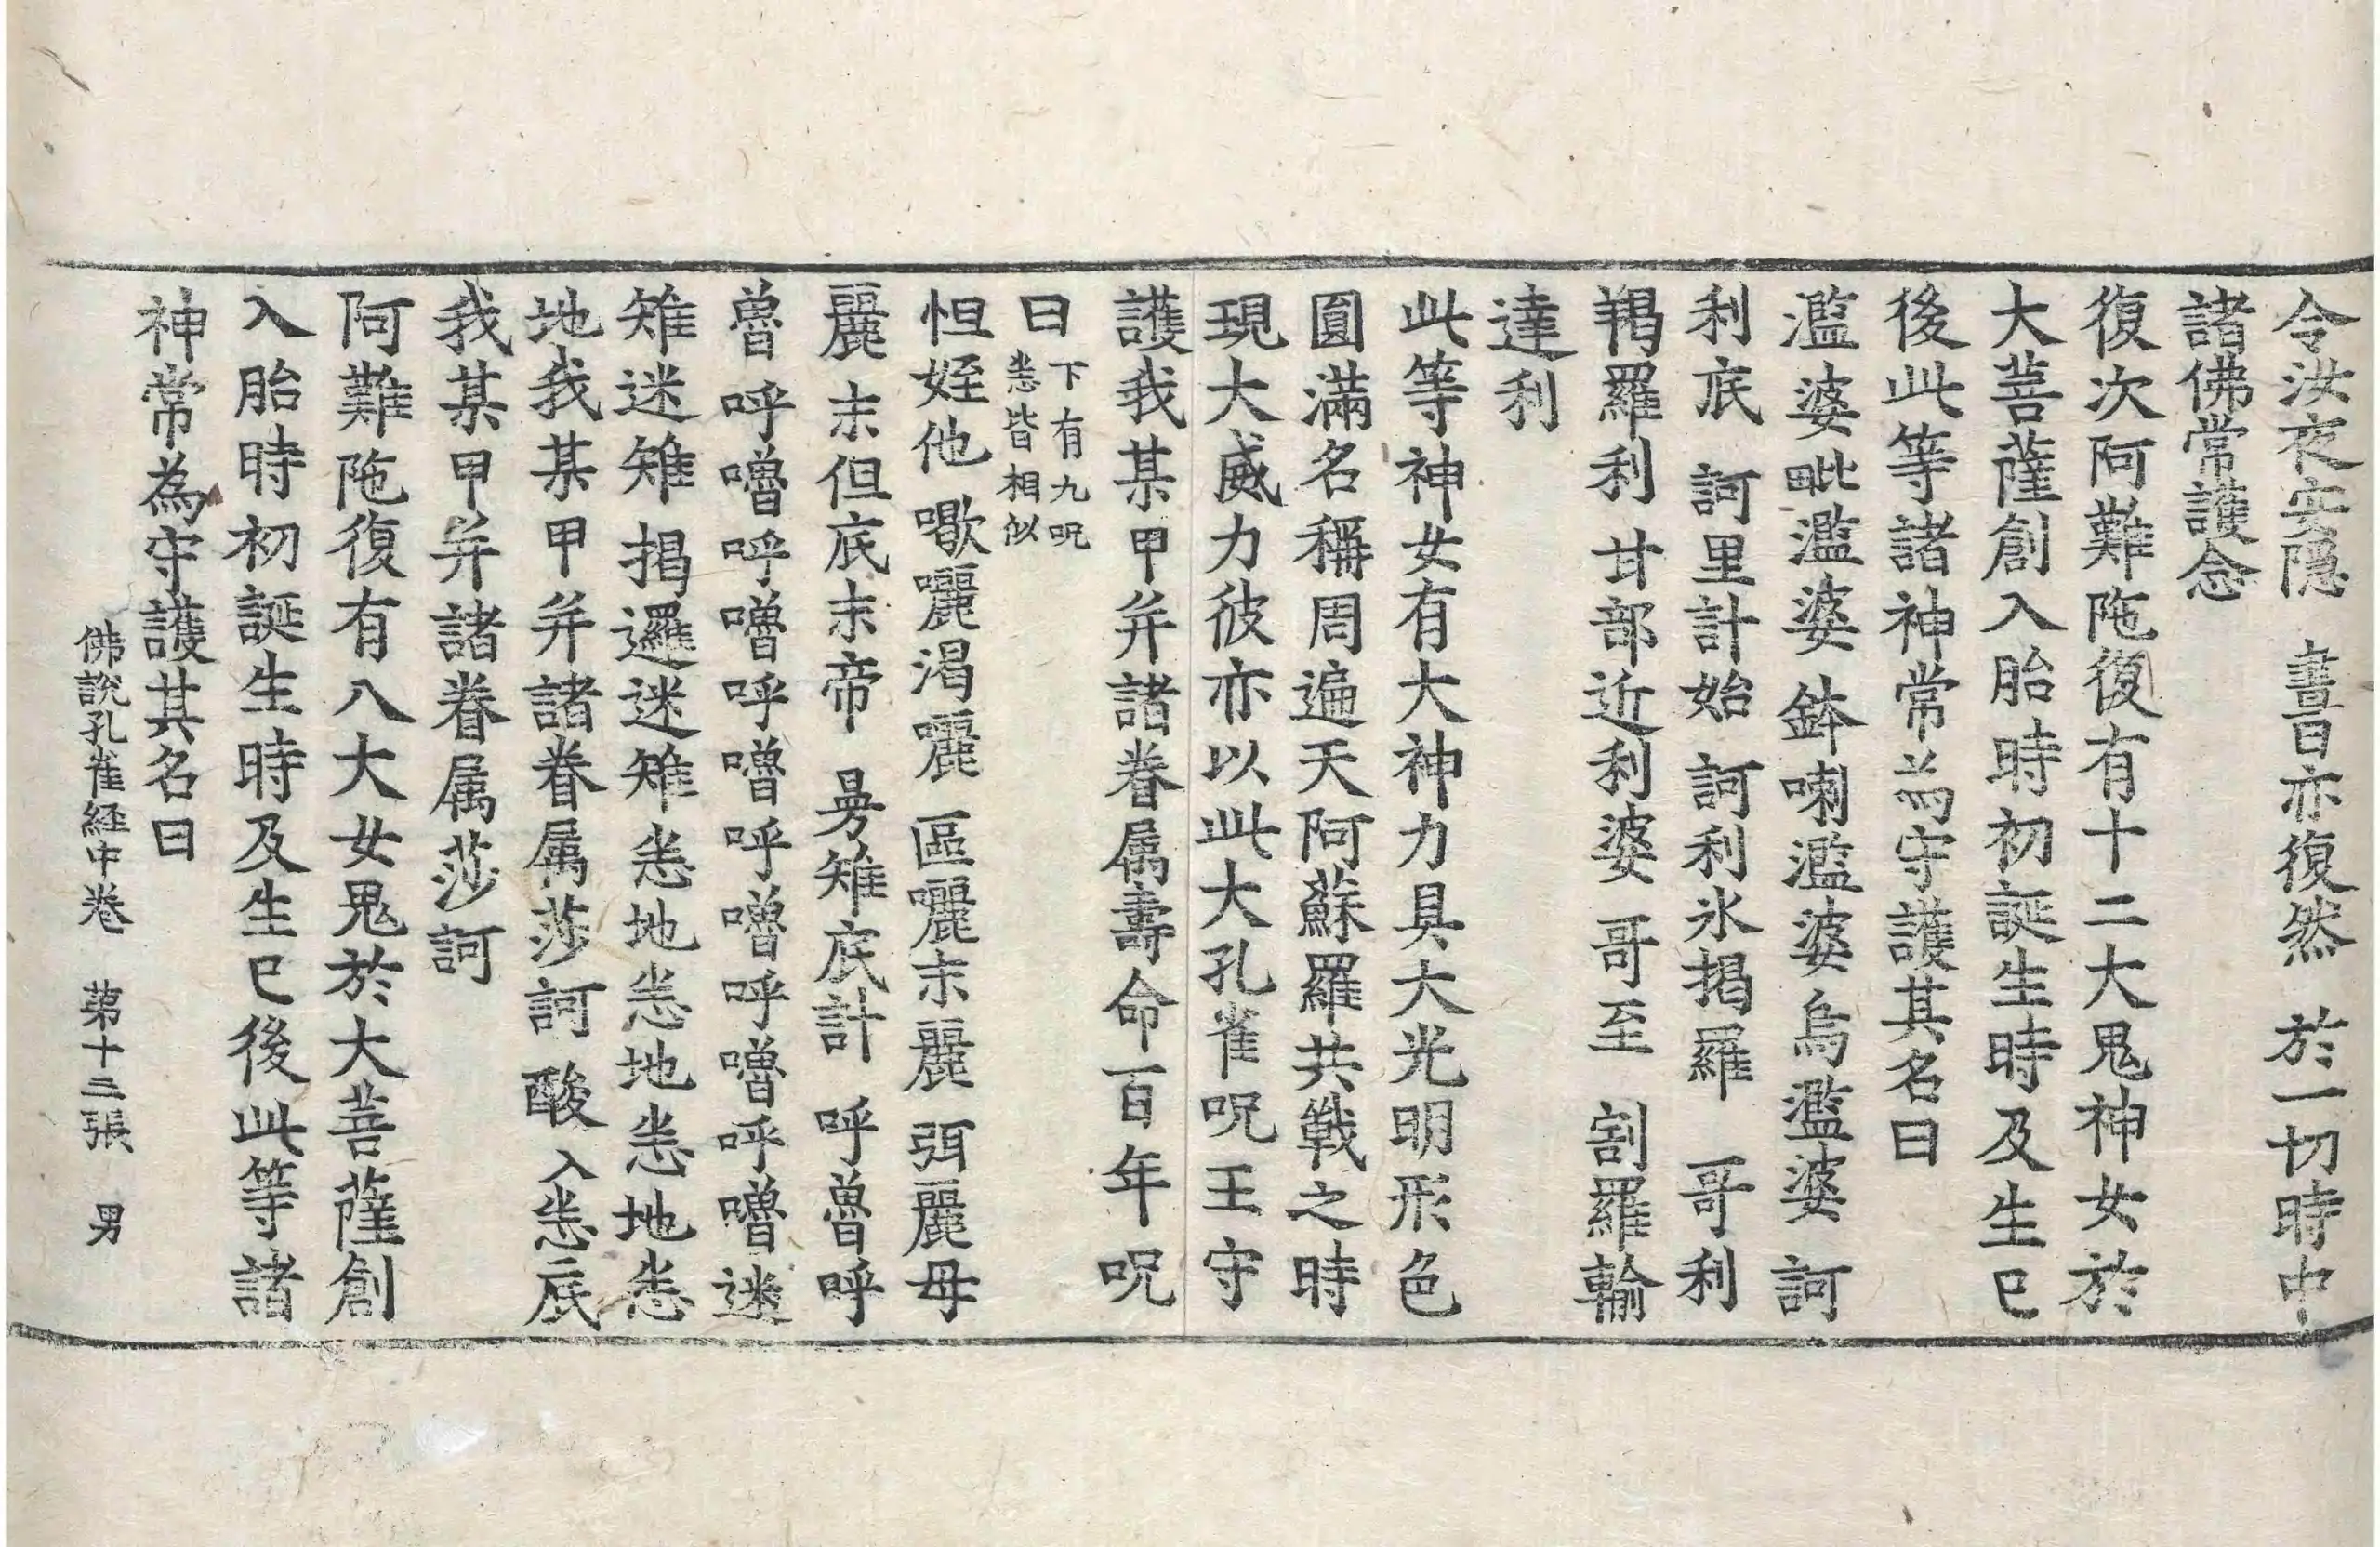 令汝夜安隱　晝日亦復然　於一切時中
諸佛常護念
復次阿難陁復有十二大鬼神女於
大菩薩創入胎時初誕生時及生已
後此等諸神常為守護其名曰
濫婆毗濫婆　鉢喇濫婆烏濫婆　訶
利底　訶里計始　訶利氷揭羅　哥利
羯羅利　甘部近利婆　哥至　割羅輸
達利
此等神女有大神力具大光明形色
圓滿名稱周遍天阿蘇羅共戰之時
現大威力彼亦以此大孔雀呪王守
護我某甲并諸眷属壽命百年呪
曰下有九呪悉皆相似
怛姪他　囐囇渴囇　區囇末麗　弭麗母
麗　末但底末帝　曼雉底計　呼魯呼
魯　呼嚕呼嚕呼嚕呼嚕呼嚕呼嚕迷
雉迷雉　揭邏迷迷雉悉地悉地悉地悉
地我某甲并諸眷属莎訶　酸入悉底
我某甲并諸眷属莎訶
阿難陁復有八大女鬼於大菩薩創
入胎時初誕生時及生已後此等諸
神常為守護其名曰
佛說孔雀経中卷　第十二張　男